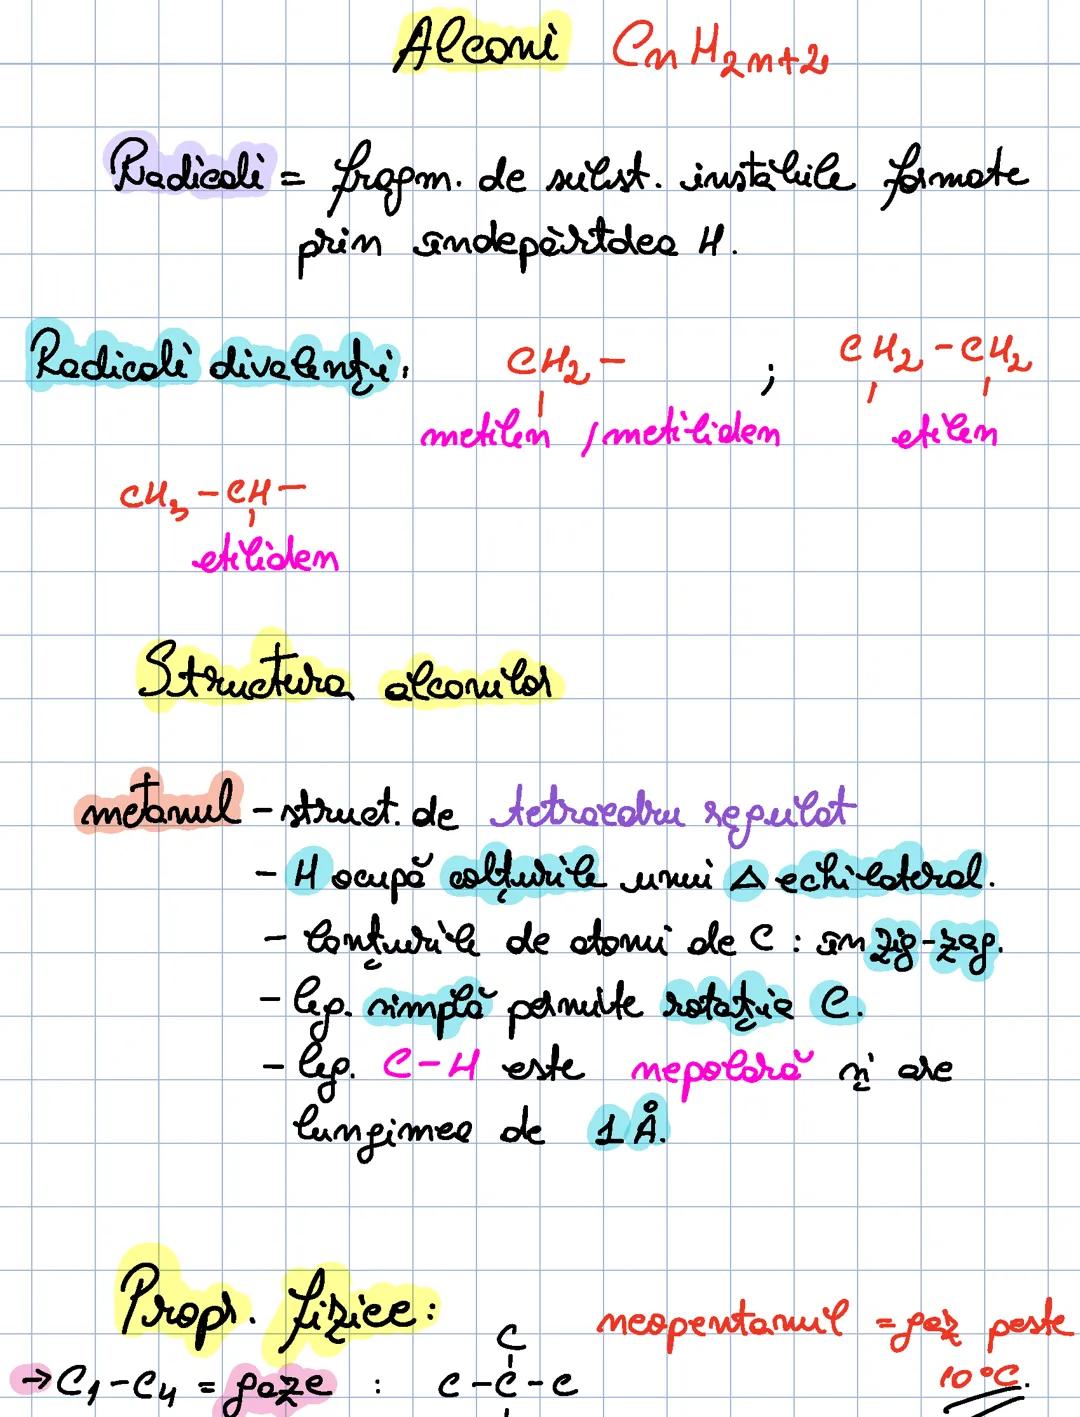 Alcani CnH2n+2
Radicali = fragm. de subst. instabile formate
prin îndepărtarea H.
Radicali divalenți: CH2- ; CH2-CH2
metilen / metiliden etilen
CH3-CH-
etiliden
Structura alcanilor
metanul - struct. de tetraedru regulat
- H ocupă colțurile unui Δ echilateral.
- lanțurile de atomi de C : în zig-zag.
- leg. simplă permite rotația C.
- leg. C-H este nepolară și are
lungimea de 1 Å.
Propr. fizice:
neopentanul = gaz peste
10°C.
C
→ C1-C4 = gaze : C-C-C